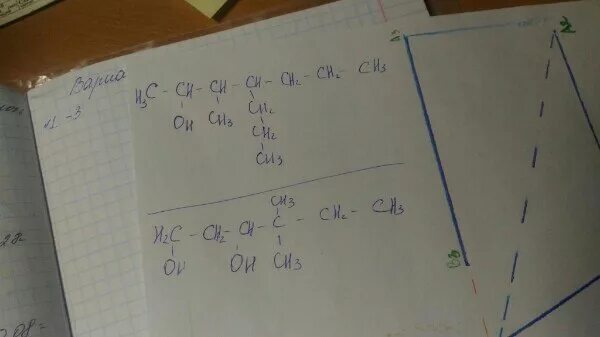 Вариа
№1 -3
H₃C - CH - CH - CH - CH₂ - CH₂ - CH₃
OH CH₃ CH₂
CH₂
CH₃
CH₃
H₂C - CH₂ - CH - C - CH₂ - CH₃
OH OH CH₃
A2
B3